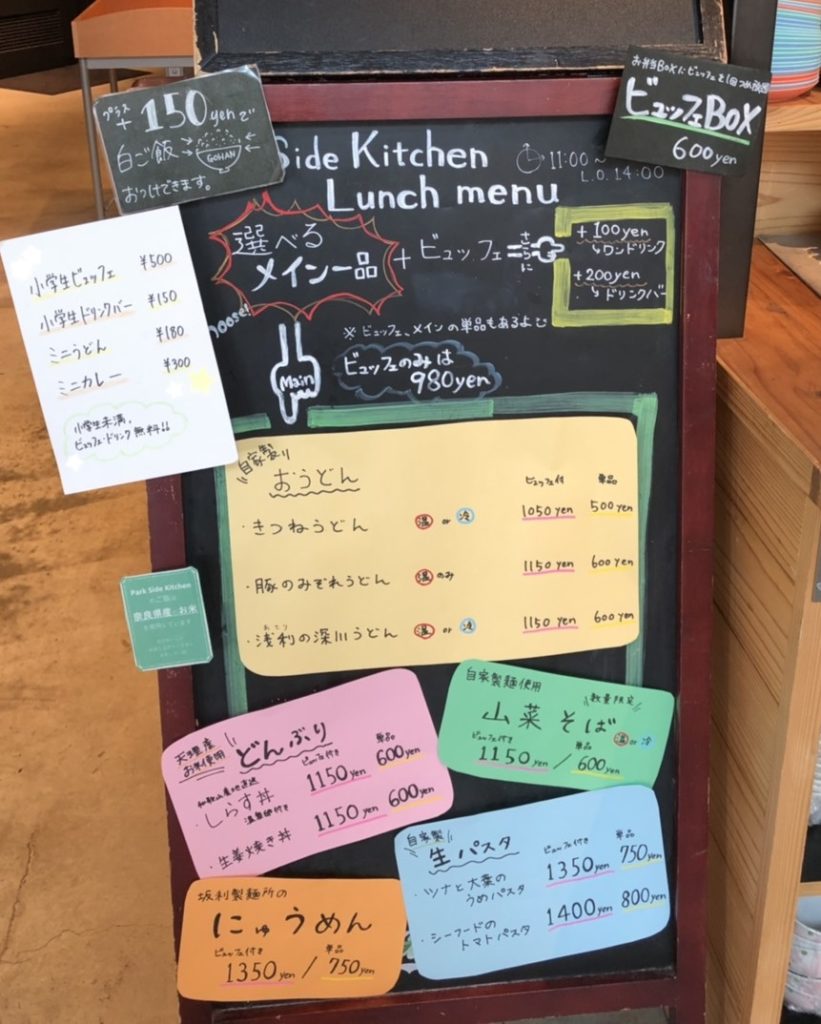 プラス
+150yenで
白ご飯
GOHAN
おつけできます。
お弁当BOXにビュッフェを1回つめ放題
ビュッフェBOX
600yen
Side Kitchen
Lunch menu
11:00~
L.O. 14:00
選べる
メイン一品
+ ビュッフェ
さらに
+100yen
ワンドリンク
+200yen
ドリンクバー
hoose!
※ビュッフェ、メインの単品もあるよ
ビュッフェのみは
980yen
Main
小学生ビュッフェ ¥500
小学生ドリンクバー ¥150
ミニうどん ¥180
ミニカレー ¥300
小学生未満、
ビュッフェ・ドリンク無料!!
自家製
おうどん
ビュッフェ付 単品
・きつねうどん 温 or 冷 1050yen 500yen
・豚のみぞれうどん 温のみ 1150yen 600yen
あさり
・浅利の深川うどん 温 or 冷 1150yen 600yen
Park Side Kitchen
奈良県産のお米
天理産
お米使用
どんぶり
ビュッフェ付き 単品
和歌山産地直送
・しらす丼 1150yen 600yen
温泉卵付き
・生姜焼き丼 1150yen 600yen
自家製麺使用
数量限定
山菜そば
温 or 冷
ビュッフェ付き 単品
1150yen / 600yen
自家製
生パスタ
ビュッフェ付き 単品
・ツナと大葉の
うめパスタ 1350yen 750yen
・シーフードの
トマトパスタ 1400yen 800yen
坂利製麺所の
にゅうめん
ビュッフェ付き 単品
1350yen / 750yen